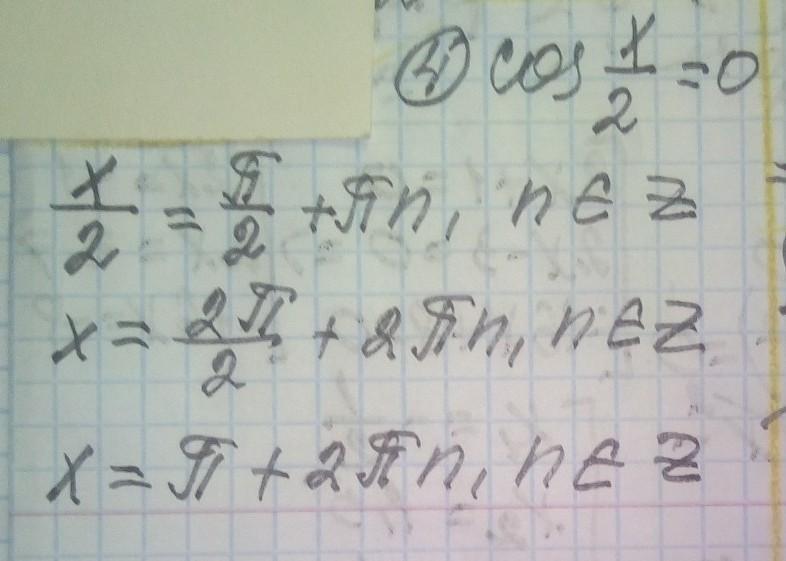 ④ cos x/2 = 0
x/2 = π/2 + πn, n ∈ Z
x = 2π/2 + 2πn, n ∈ Z
x = π + 2πn, n ∈ Z